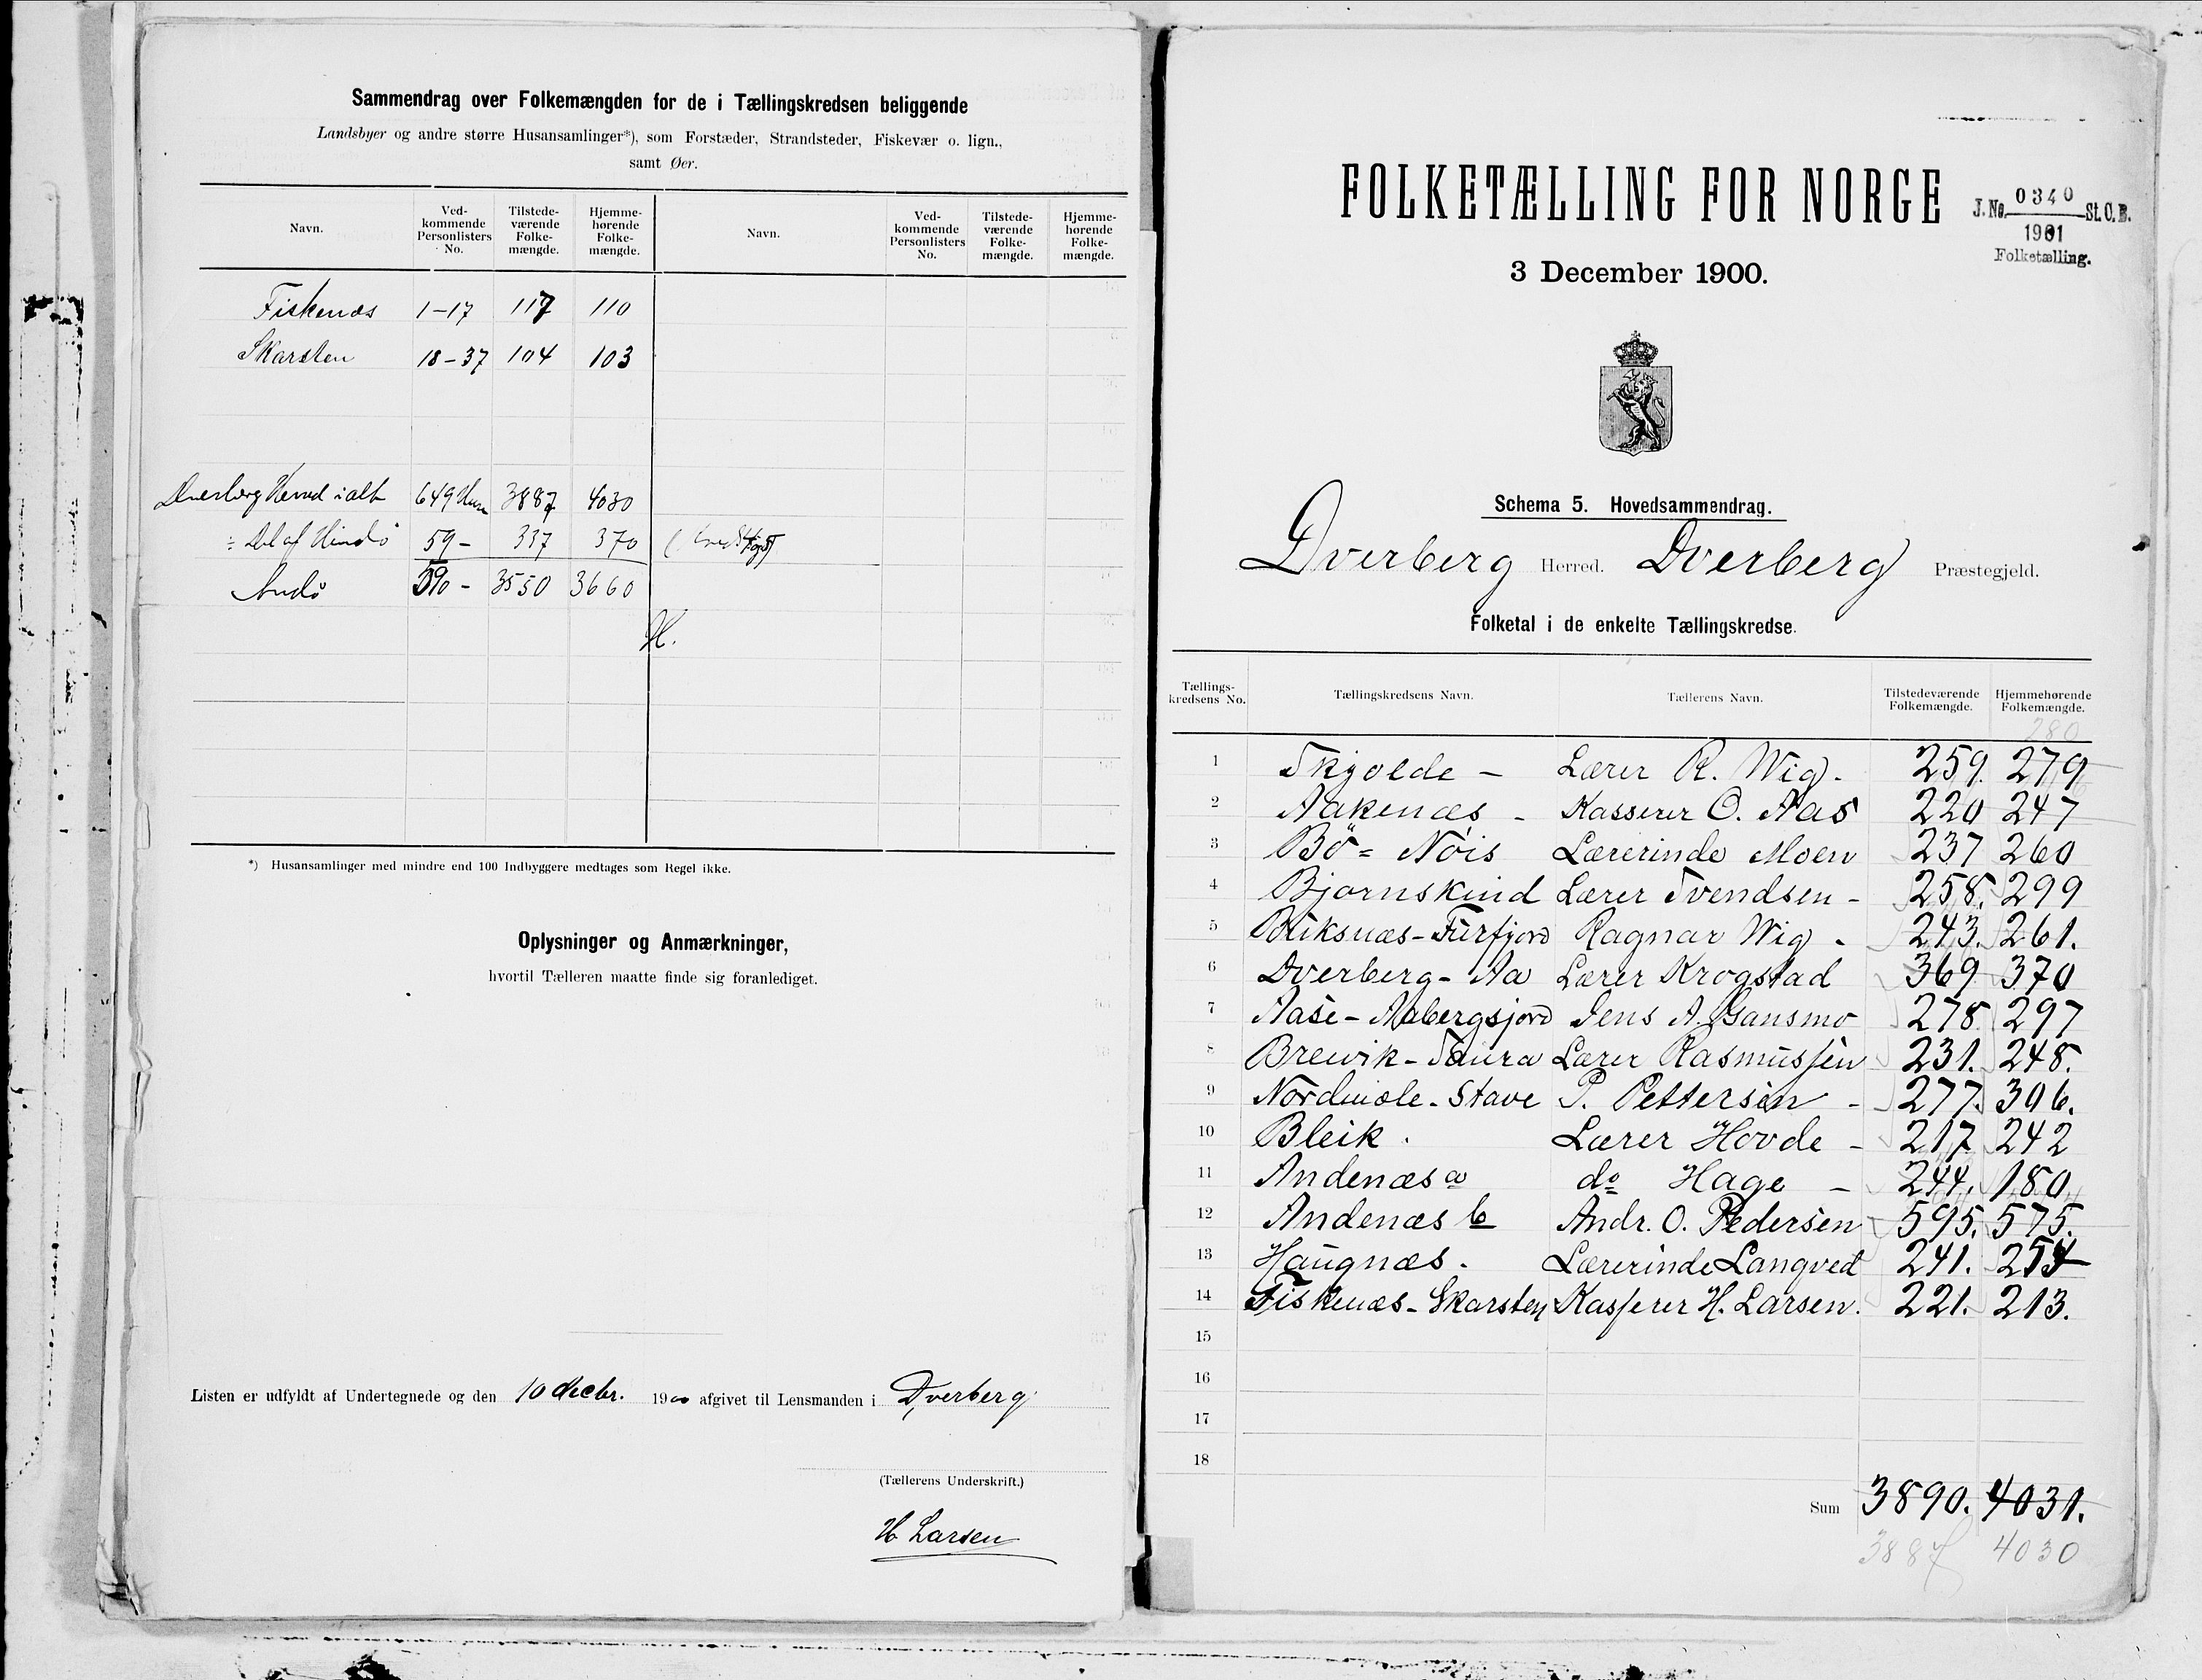 Sammendrag over Folkemængden for de i Tællingskredsen beliggende
Landsbyer og andre større Husansamlinger*), som Forstæder, Strandsteder, Fiskevær o. lign.,
samt Øer.
Navn. Ved-kommende Personlisters No. Tilstede-værende Folke-mængde. Hjemme-hørende Folke-mængde. Navn. Ved-kommende Personlisters No. Tilstede-værende Folke-mængde. Hjemme-hørende Folke-mængde.
Fiskenæs 1-17 117 110
Skarsten 18-37 104 103
Dverberg Herred ialt 649 Hus 3887 4030
÷ Del af Hindø 59 - 337 370
Andø 590 - 3550 3660
H.
*) Husansamlinger med mindre end 100 Indbyggere medtages som Regel ikke.
Oplysninger og Anmærkninger,
hvortil Tælleren maatte finde sig foranlediget.
Listen er udfyldt af Undertegnede og den 10 decbr. 1900 afgivet til Lensmanden i Dverberg
(Tællerens Underskrift.)
H Larsen
FOLKETÆLLING FOR NORGE
J. No. 0340 St. C. B.
1901
Folketælling.
3 December 1900.
Schema 5. Hovedsammendrag.
Dverberg Herred. Dverberg Præstegjeld.
Folketal i de enkelte Tællingskredse.
Tællings-kredsens No. Tællingskredsens Navn. Tællerens Navn. Tilstedeværende Folkemængde. Hjemmehørende Folkemængde.
280
1 Skjolde - Lærer R. Wig. 259. 279
2 Aakenæs - Kasserer O. Aas 220 247
3 Bö = Nöis Lærerinde Moen 237 260
4 Bjørnskind Lærer Svendsen - 258. 299
5 Buksnæs - Furfjord Ragnar Wig. 243. 261.
6 Dverberg - Aa Lærer Krogstad 369 370
7 Aase - Aabergsjord Jens A. Gansmo 278 297
8 Brewik - Saura Lærer Rasmussen 231. 248.
9 Nordmæle - Stave P. Pettersen - 277. 306.
10 Bleik. Lærer Hovde - 217 242
11 Andenæs a do Hage - 244. 180
12 Andenæs b Andr. O. Pedersen 595. 575.
13 Haugnæs. Lærerinde Langved 241. 254
14 Fiskenæs - Skarsten Kasserer H. Larsen. 221. 213.
15
16
17
18
Sum 3890. 4031.
3887 4030